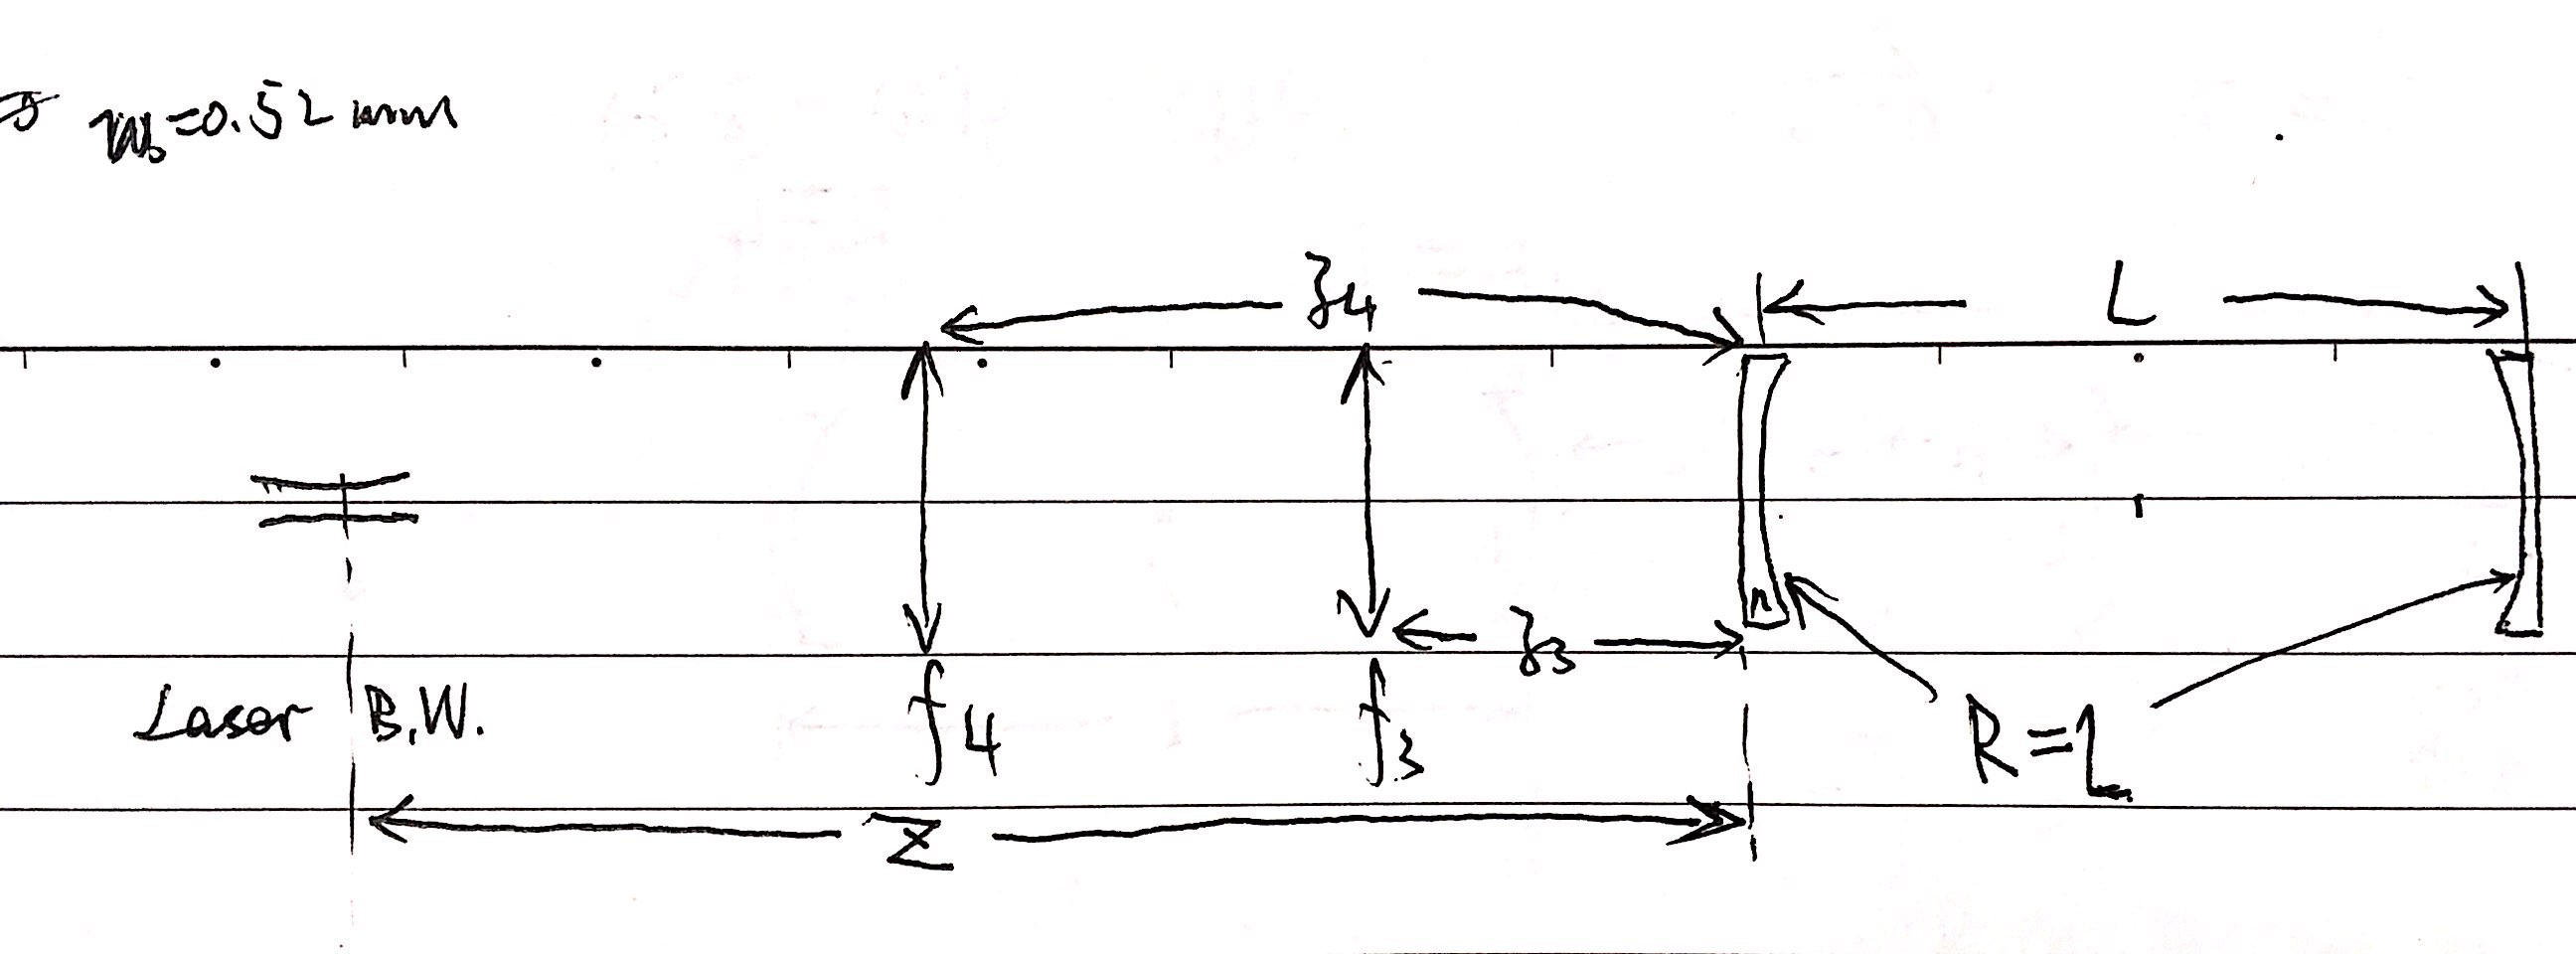 ⇒ w₀=0.52 mm
z4
L
n
z3
Laser B.W.
f4
f3
R=L
Z